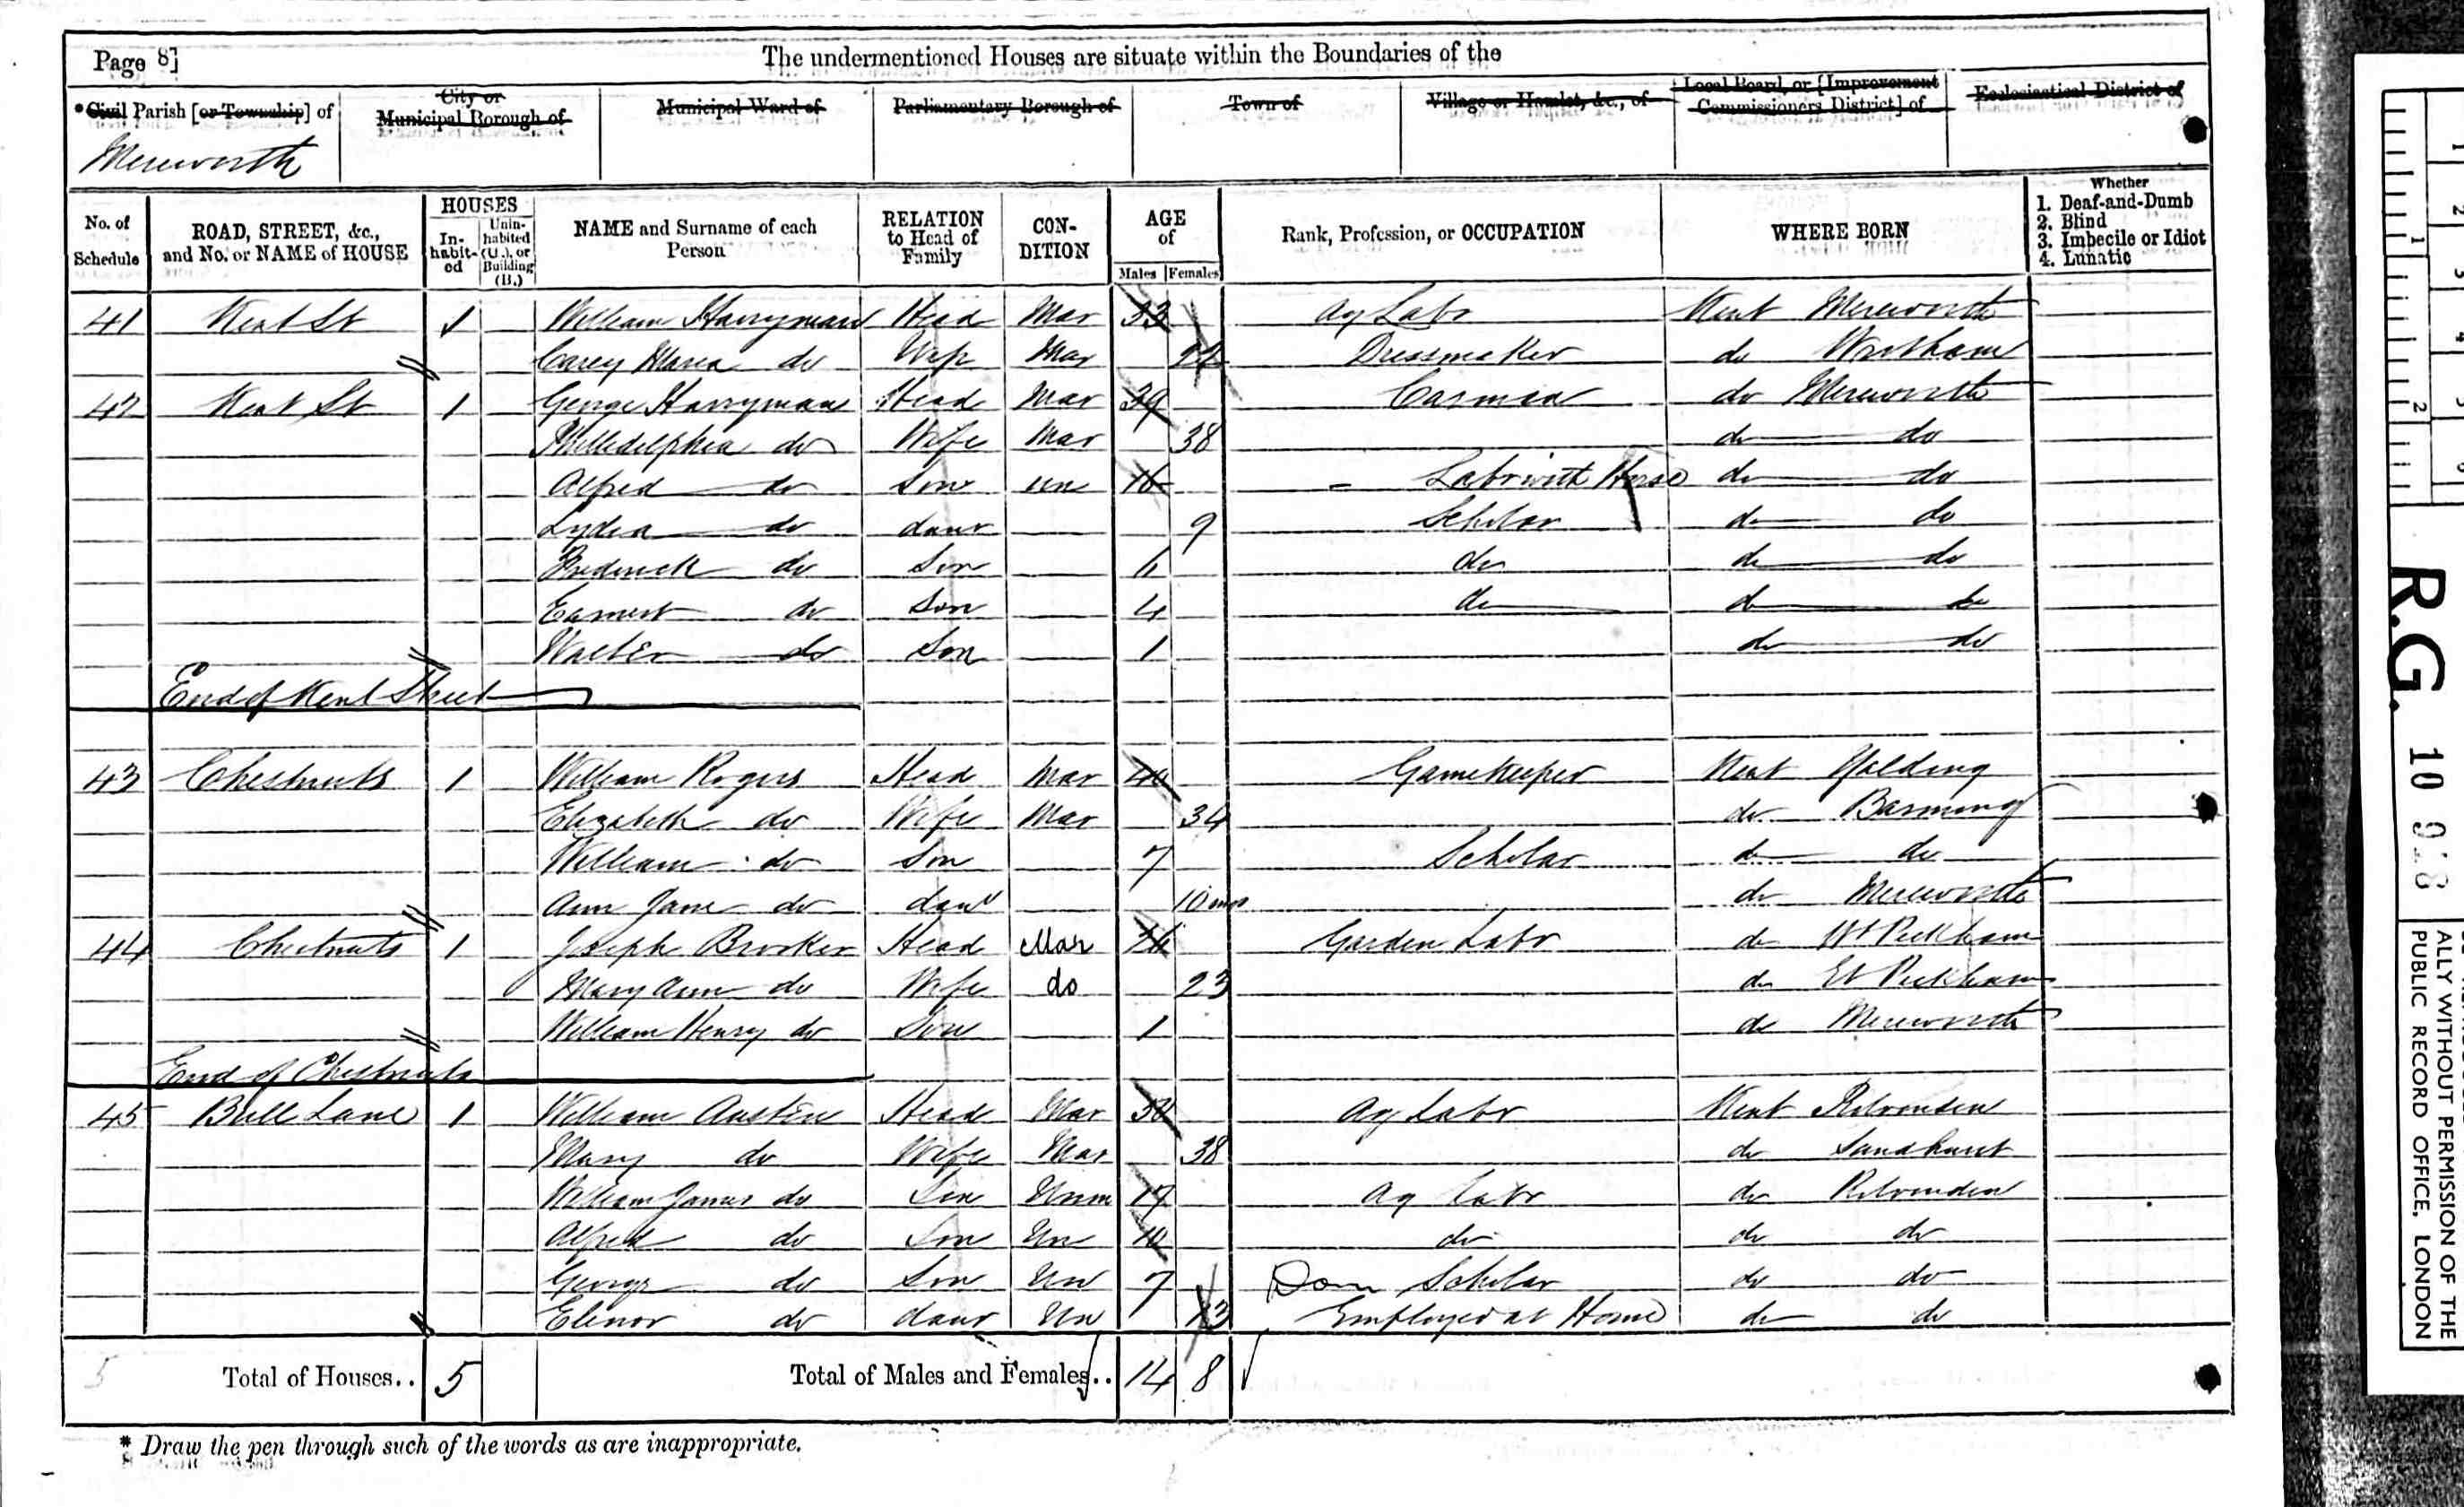 Page 8]
The undermentioned Houses are situate within the Boundaries of the
*Civil Parish [or Township] of
City or Municipal Borough of
Municipal Ward of
Parliamentary Borough of
Town of
Village or Hamlet, &c., of
Local Board, or [Improvement Commissioners District] of
Ecclesiastical District of
Mereworth
No. of Schedule
ROAD, STREET, &c., and No. or NAME of HOUSE
HOUSES
In-habit-ed
Unin-habited (U.), or Building (B.)
NAME and Surname of each Person
RELATION to Head of Family
CON-DITION
AGE of
Males Females
Rank, Profession, or OCCUPATION
WHERE BORN
Whether
1. Deaf-and-Dumb
2. Blind
3. Imbecile or Idiot
4. Lunatic
41 Kent St 1 William Harryman Head Mar 33 Ag Labr Kent Mereworth
Maria do Wife Mar Dressmaker do Wrotham
42 Kent St 1 George Harryman Head Mar 39 Carman do Mereworth
Philledelphia do Wife Mar 38 do do
Alfred do Son un 16 Labr with Horse do do
Lydia do daur 9 Scholar do do
Frederick do Son 6 do do do
Earnest do Son 4 do do do
Walter do Son 1 do do
End of Kent Street
43 Chestnuts 1 William Rogers Head Mar 40 Gamekeeper Kent Yalding
Elizabeth do Wife Mar 34 do Barming
William do Son 7 Scholar do do
Ann Jane do daur 10 mos do Mereworth
44 Chestnuts 1 Joseph Brooker Head Mar 26 Garden Labr do Wt Peckham
Mary Ann do Wife do 23 do Et Peckham
William Henry do Son 1 do Mereworth
End of Chestnuts
45 Bull Lane 1 William Austin Head Mar Ag Labr Kent Rolvenden
Mary do Wife Mar 38 do Sandhurst
William James do Son Unm 17 Ag Labr do Rolvenden
Alfred do Son Un do do do
George do Son Un 7 Dom Scholar do do
Elinor do daur Un 13 Employed at Home do do
5 Total of Houses.. 5 Total of Males and Females.. 14 8
* Draw the pen through such of the words as are inappropriate.
R.G. 10
ALLY WITHOUT PERMISSION OF THE
PUBLIC RECORD OFFICE, LONDON